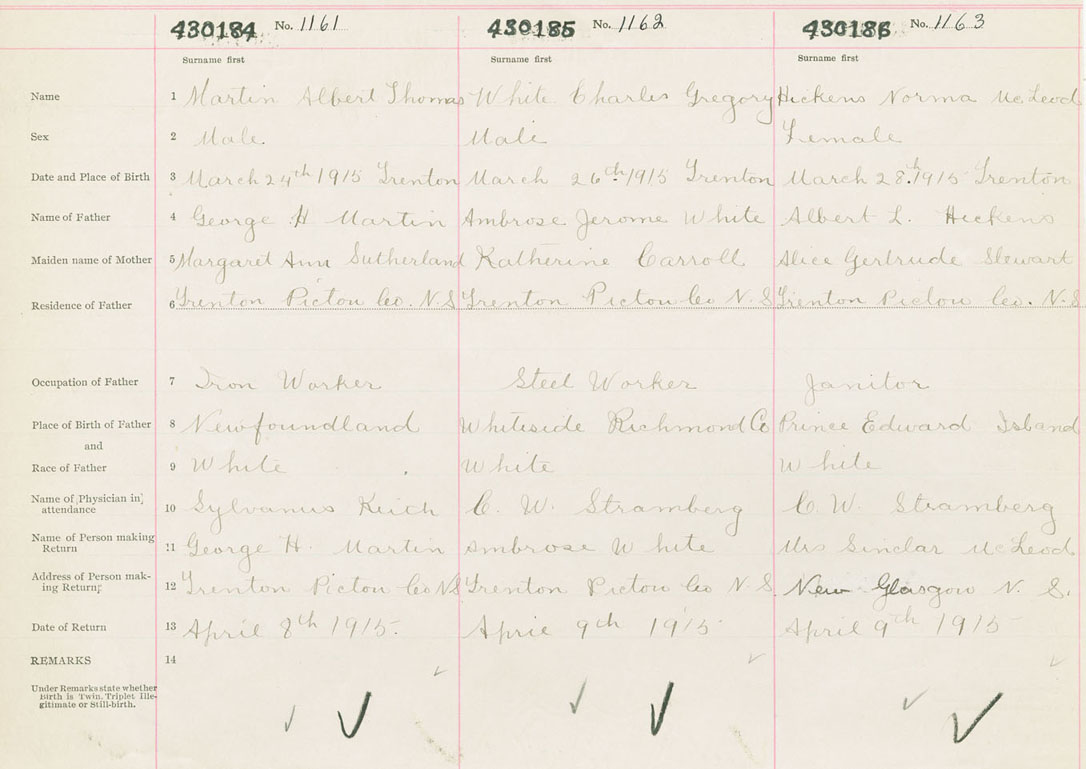 430184 No. 1161 430185 No. 1162 430186 No. 1163
Surname first Surname first Surname first
Name 1 Martin Albert Thomas White Charles Gregory Hickens Norma McLeod
Sex 2 Male Male Female
Date and Place of Birth 3 March 24th 1915 Trenton March 26th 1915 Trenton March 28th 1915 Trenton
Name of Father 4 George H Martin Ambrose Jerome White Albert L. Hickens
Maiden name of Mother 5 Margaret Ann Sutherland Katherine Carroll Alice Gertrude Stewart
Residence of Father 6 Trenton Pictou Co. N.S Trenton Pictou Co N.S Trenton Pictou Co. N.S
Occupation of Father 7 Iron Worker Steel Worker Janitor
Place of Birth of Father 8 Newfoundland Whiteside Richmond Co Prince Edward Island
and
Race of Father 9 White White White
Name of Physician in attendance 10 Sylvanus Keich C. W. Stramberg C. W. Stramberg
Name of Person making Return 11 George H. Martin Ambrose White Mrs Sinclar McLeod
Address of Person making Return; 12 Trenton Pictou Co NS Trenton Pictou Co N.S. New Glasgow N. S.
Date of Return 13 April 8th 1915. April 9th 1915 April 9th 1915
REMARKS 14
Under Remarks state whether
Birth is Twin, Triplet Ille-
gitimate or Still-birth.